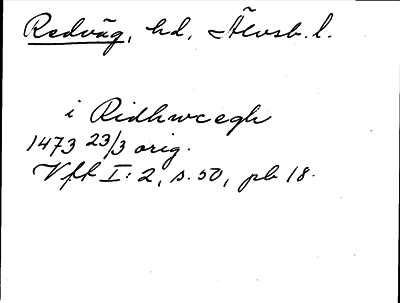 Redväg, hd, Älvsb. l.
i Ridhwægh
1473 23/3 orig.
Vfft I: 2, s. 50, pb 18.